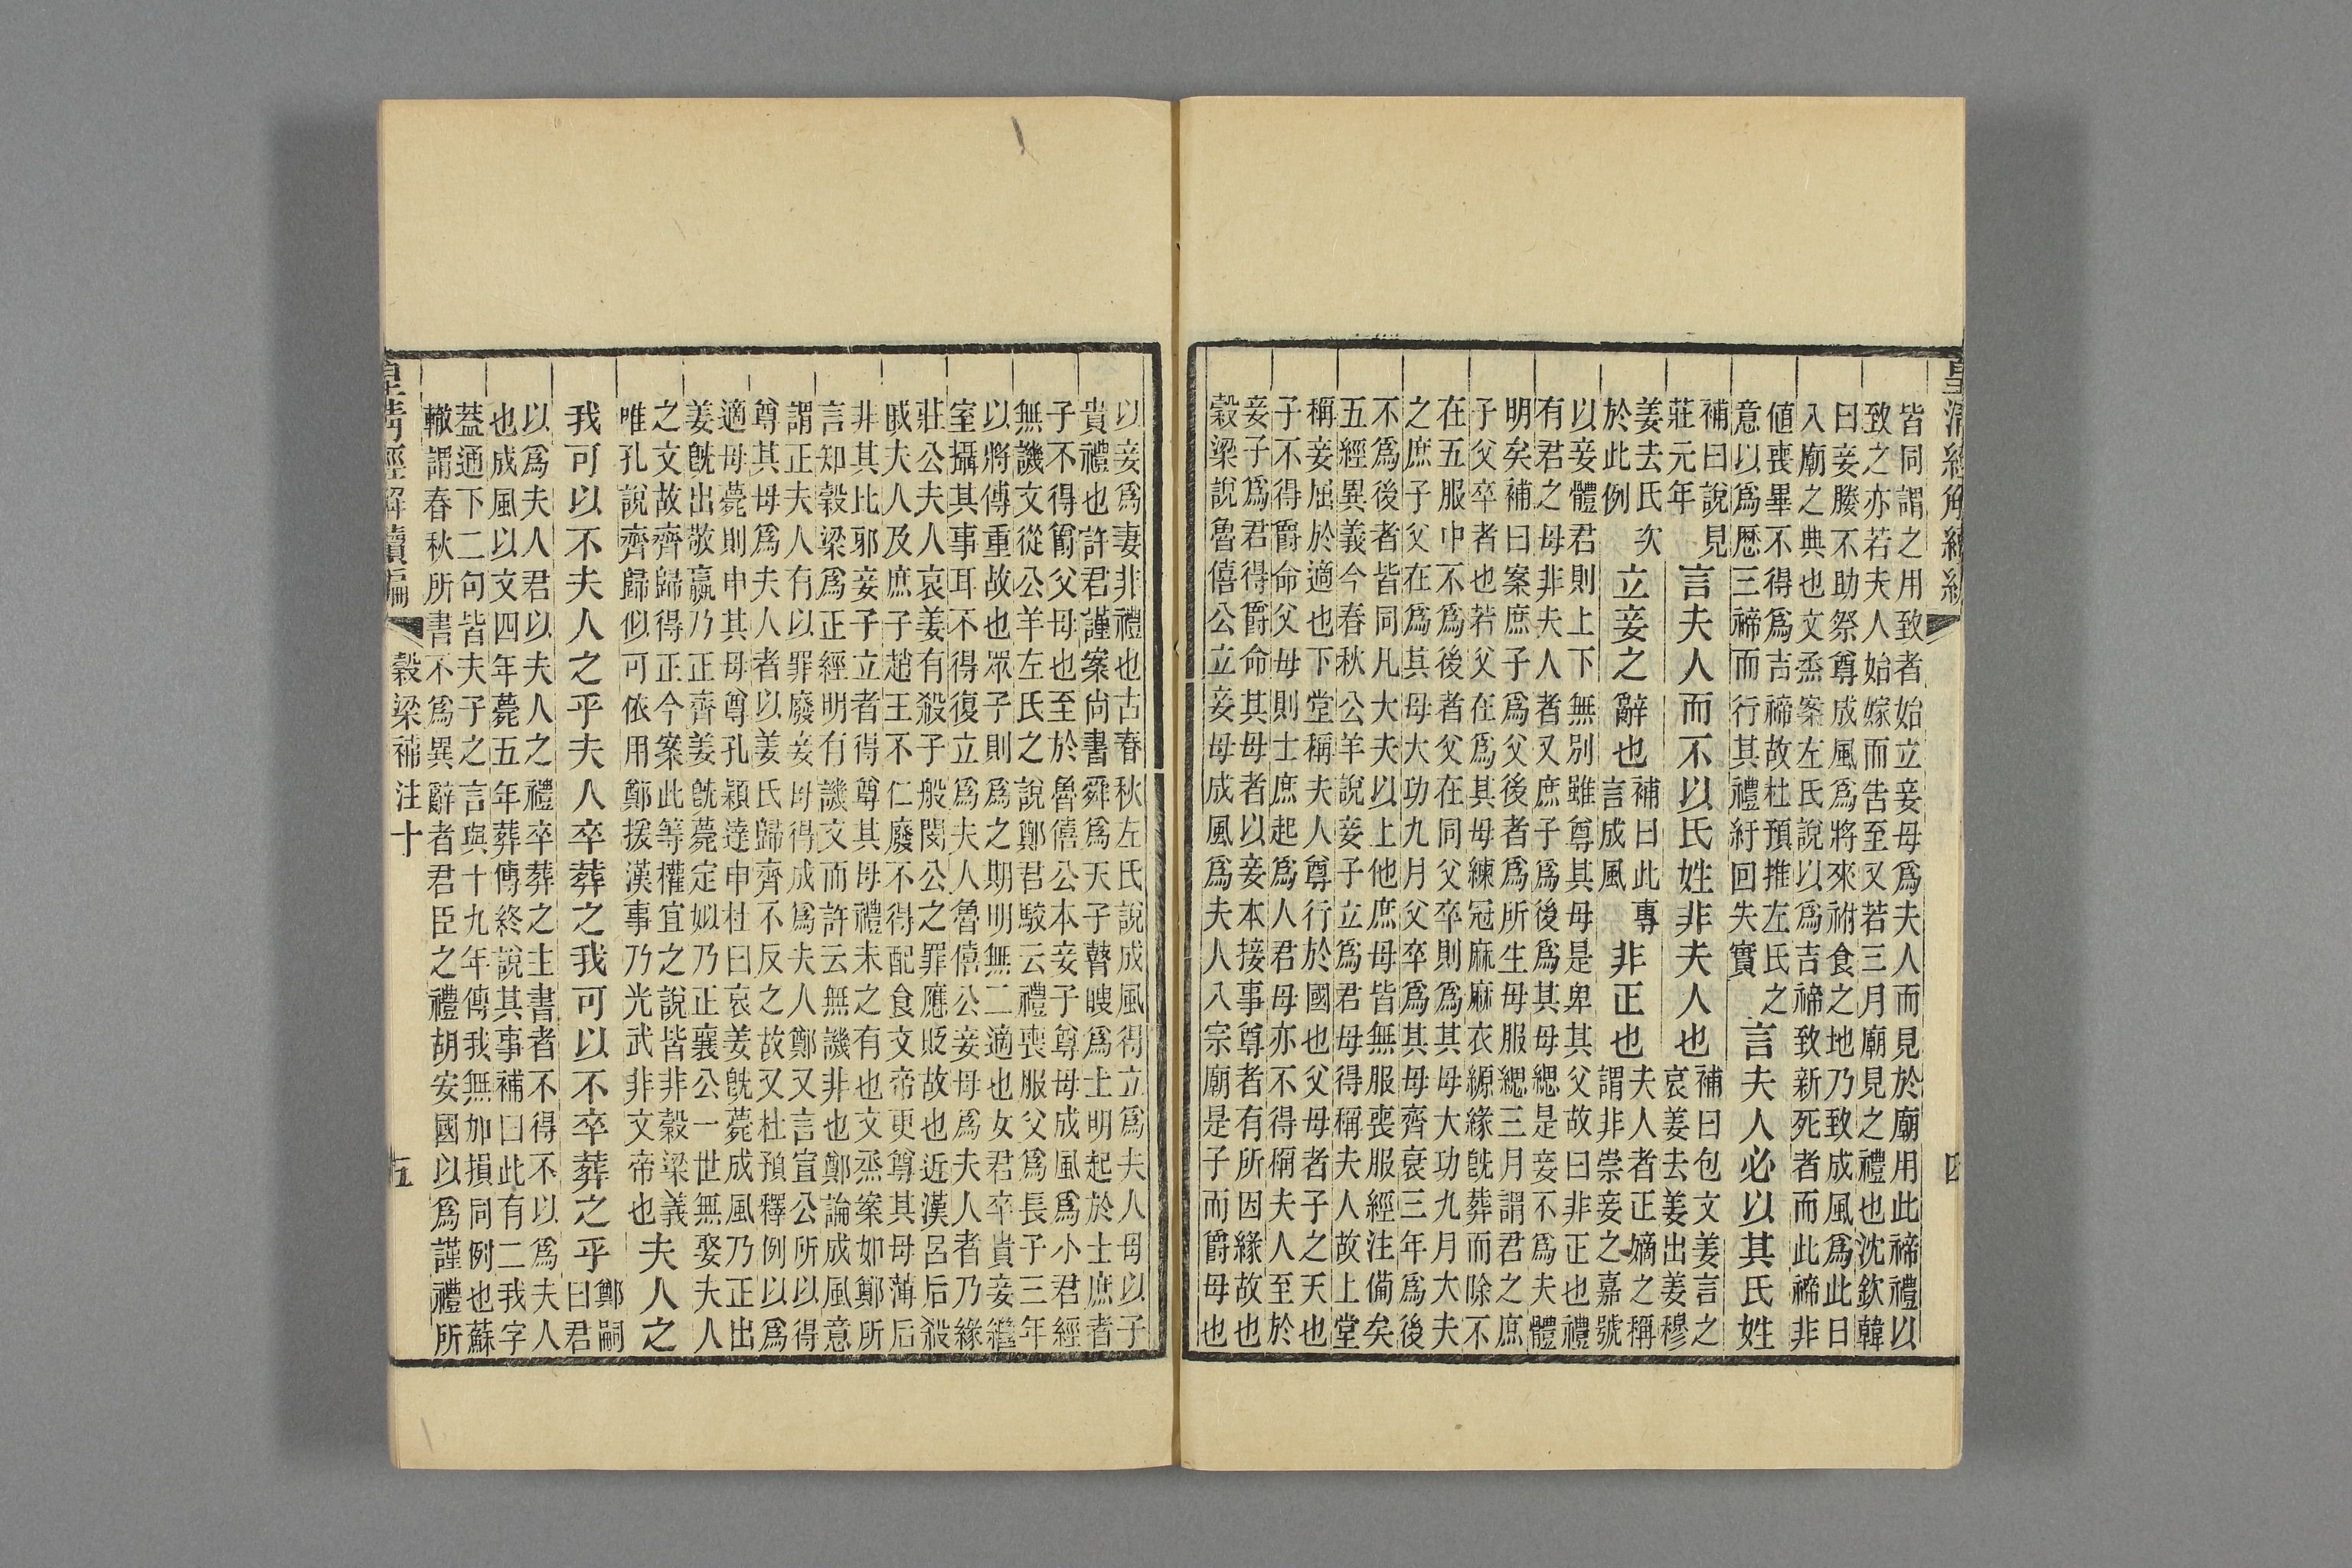 皆同謂之用致者始立妾母爲夫人而見於廟用此禘禮以
致之亦若夫人始嫁而告至又若三月廟見之禮也沈欽韓
曰妾媵不助祭尊成風爲將來祔食之地乃致成風爲此日
入廟之典也文烝案左氏說以爲吉禘致新死者而此禘非
値喪畢不得爲吉禘故杜預推左氏之
意以爲歷三禘而行其禮紆回失實
言夫人必以其氏姓
補曰說見
莊元年
言夫人而不以氏姓非夫人也
補曰包文姜言之
哀姜去姜出姜穆
姜去氏次
於此例
立妾之辭也
補曰此專
言成風
非正也
夫人者正嫡之稱
謂非崇妾之嘉號
以妾體君則上下無別雖尊其母是卑其父故曰非正也禮
有君之母非夫人者又庶子爲後爲其母緦是妾不爲夫體
明矣補曰案庶子爲父後者爲所生母服緦三月謂君之庶
子父卒者也若父在爲其母練冠麻麻衣縓緣旣葬而除不
在五服中不爲後者父在同父卒則爲其母大功九月大夫
之庶子父在爲其母大功九月父卒爲其母齊衰三年爲後
不爲後者皆同凡大夫以上他庶母皆無服喪服經注備矣
五經異義今春秋公羊說妾子立爲君母得稱夫人故上堂
稱妾屈於適也下堂稱夫人尊行於國也父母者子之天也
子不得爵命父母則士庶起爲人君母亦不得稱夫人至於
妾子爲君得爵命其母者以妾本接事尊者有所因緣故也
穀梁說魯僖公立妾母成風爲夫人入宗廟是子而爵母也
以妾爲妻非禮也古春秋左氏說成風得立爲夫人母以子
貴禮也許君謹案尚書舜爲天子瞽瞍爲士明起於士庶者
子不得爵父母也至於魯僖公本妾子尊母成風爲小君經
無譏文從公羊左氏之說鄭君駮云禮喪服父爲長子三年
以將傳重故也眾子則爲之期明無二適也女君卒貴妾繼
室攝其事耳不得復立爲夫人魯僖公妾母爲夫人者乃緣
莊公夫人哀姜有殺子般閔公之罪應貶故也近漢呂后殺
戚夫人及庶子趙王不仁廢不得配食文帝更尊其母薄后
非其比邪妾子立者得尊其母禮未之有也文烝案如鄭所
言知穀梁爲正經明有譏文而許云無譏非也鄭論成風意
謂正夫人有以罪廢妾母得成爲夫人鄭又言宣公所以得
尊其母爲夫人者以姜氏歸齊不反之故又杜預釋例以爲
適母薨則申其母尊孔穎達申杜曰哀姜旣薨成風乃正出
姜旣出敬嬴乃正齊姜旣薨定姒乃正襄公一世無娶夫人
之文故齊歸得正今案此等權宜之說皆非穀梁義
唯孔說齊歸似可依用鄭援漢事乃光武非文帝也
夫人之
我可以不夫人之乎夫人卒葬之我可以不卒葬之乎
鄭嗣
曰君
以爲夫人君以夫人之禮卒葬之主書者不得不以爲夫人
也成風以文四年薨五年葬傳終說其事補曰此有二我字
葢通下二句皆夫子之言與十九年傳我無加損同例也蘇
轍謂春秋所書不爲異辭者君臣之禮胡安國以爲謹禮所
皇清經解續編 穀梁補注十 五